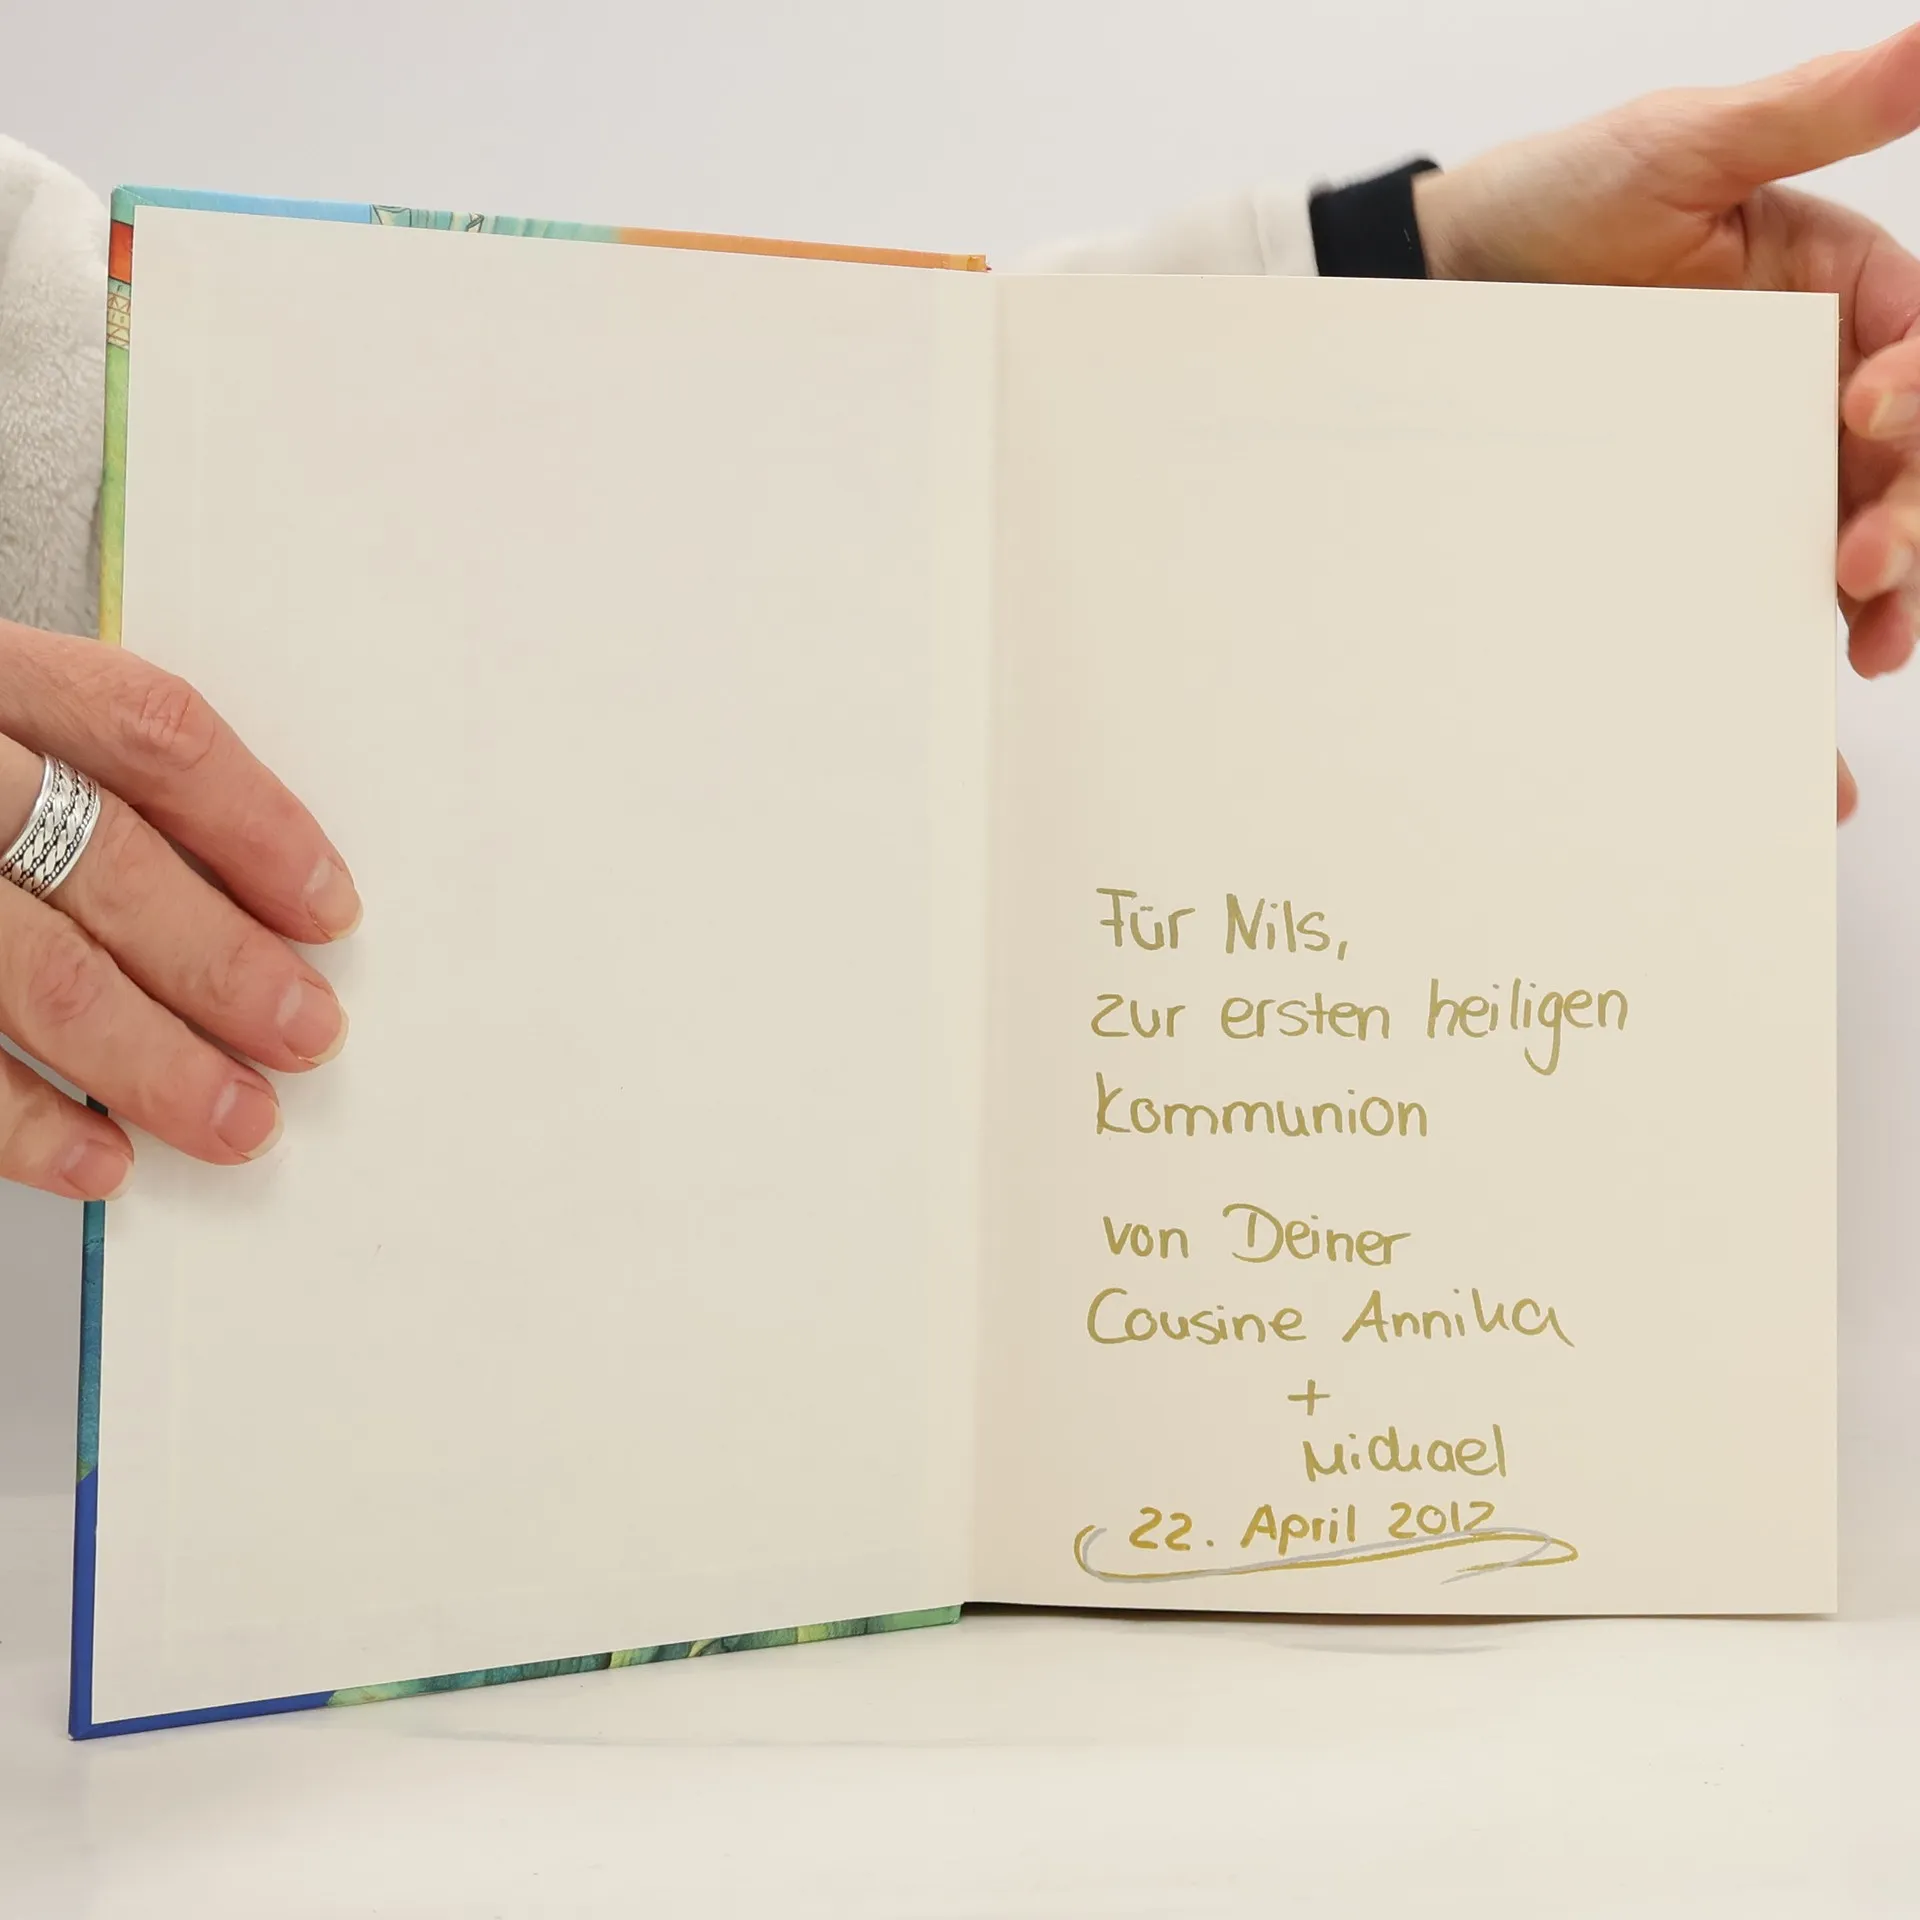 Für Nils,
zur ersten heiligen
Kommunion
von Deiner
Cousine Annika
+
Michael
22. April 2012